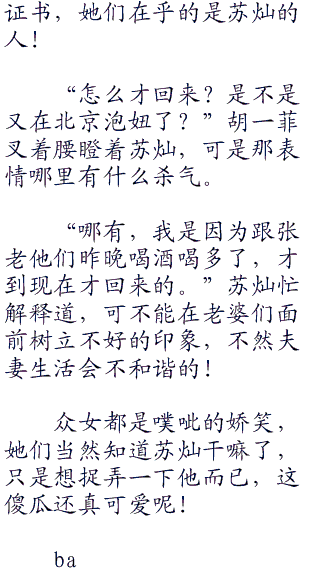 证书，她们在乎的是苏灿的
人！
“怎么才回来？是不是
又在北京泡妞了？”胡一菲
叉着腰瞪着苏灿，可是那表
情哪里有什么杀气。
“哪有，我是因为跟张
老他们昨晚喝酒喝多了，才
到现在才回来的。”苏灿忙
解释道，可不能在老婆们面
前树立不好的印象，不然夫
妻生活会不和谐的！
众女都是噗呲的娇笑，
她们当然知道苏灿干嘛了，
只是想捉弄一下他而已，这
傻瓜还真可爱呢！
ba